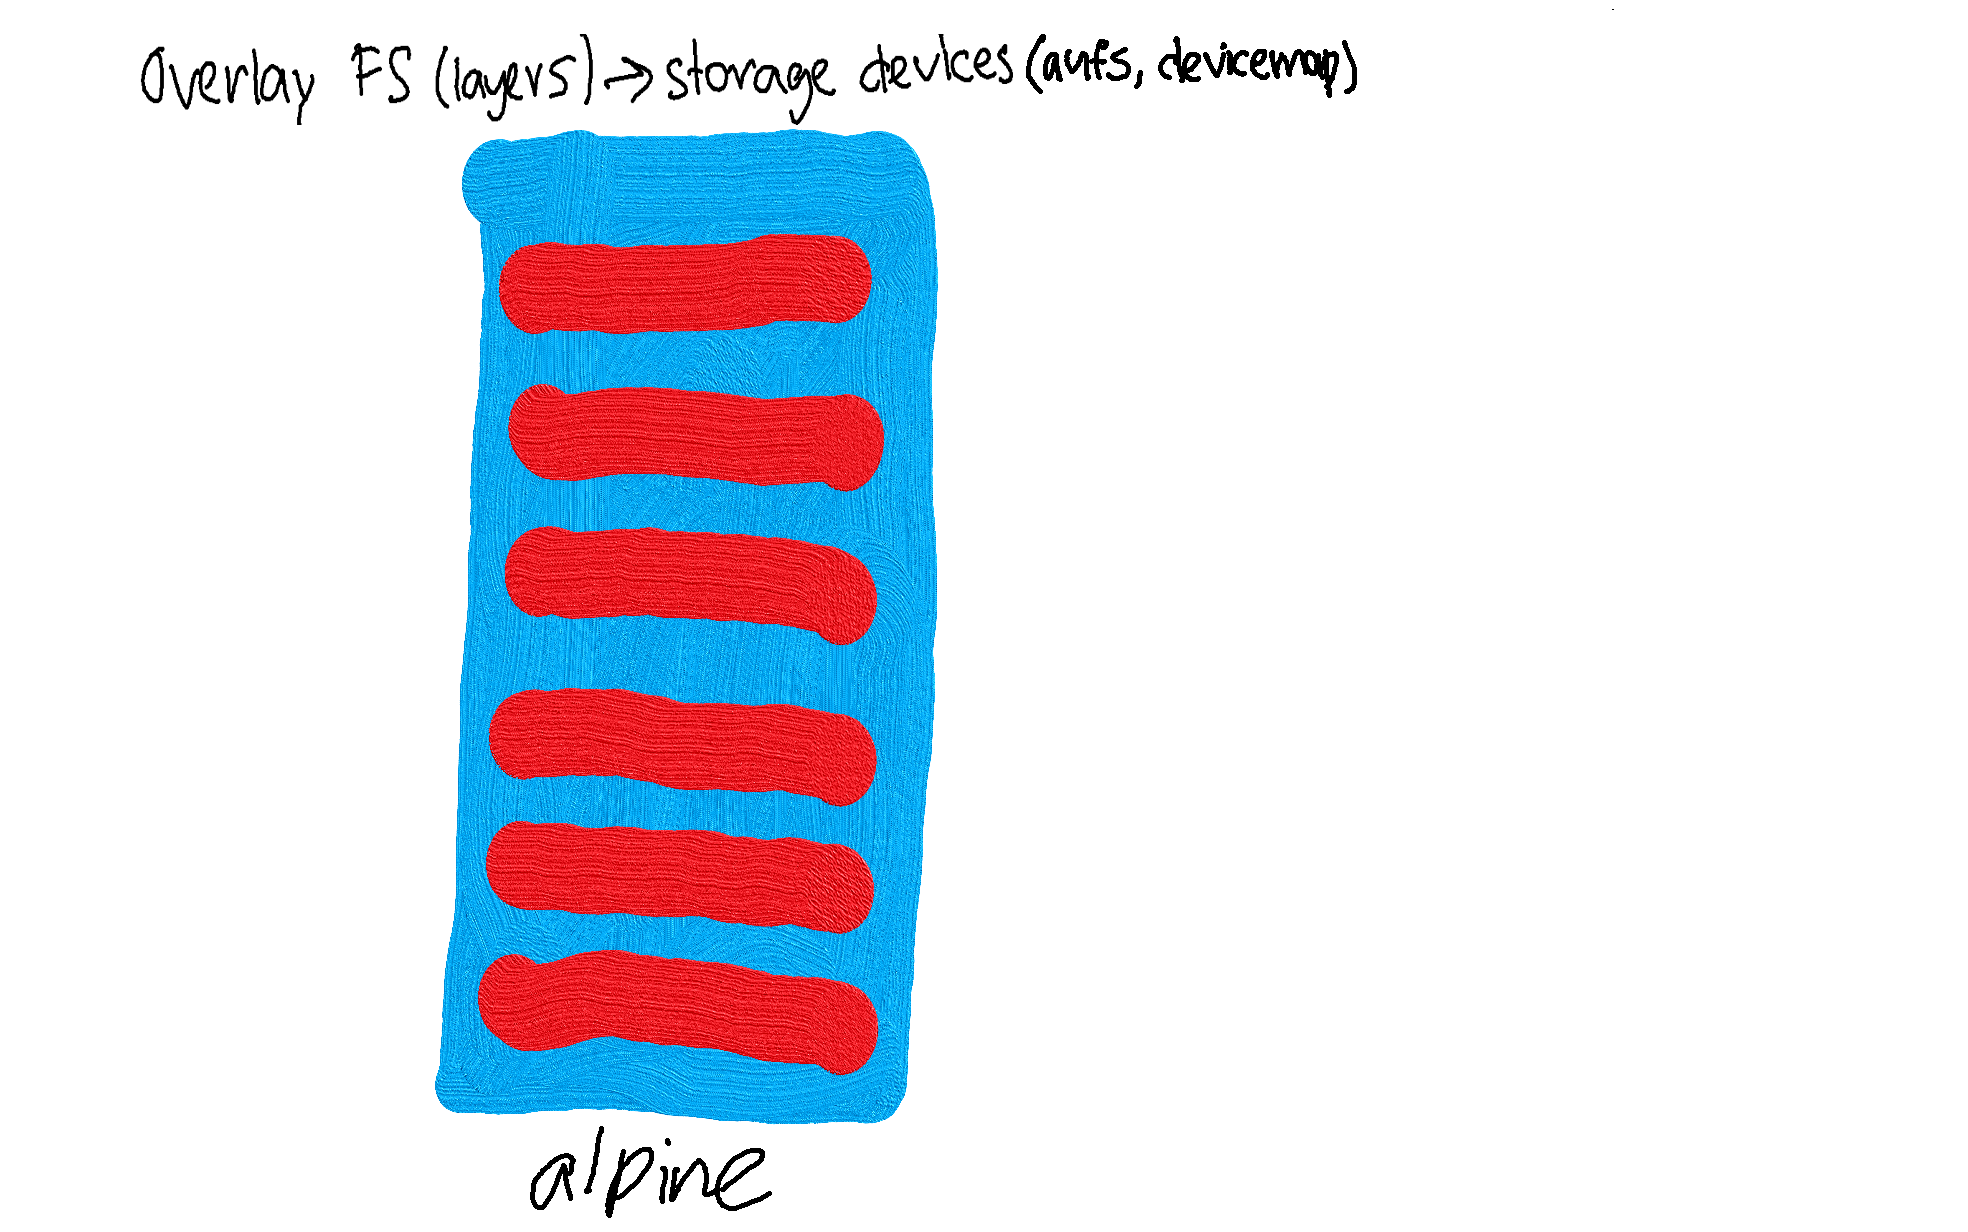 Overlay FS (layers) → storage devices (aufs, devicemap)
alpine